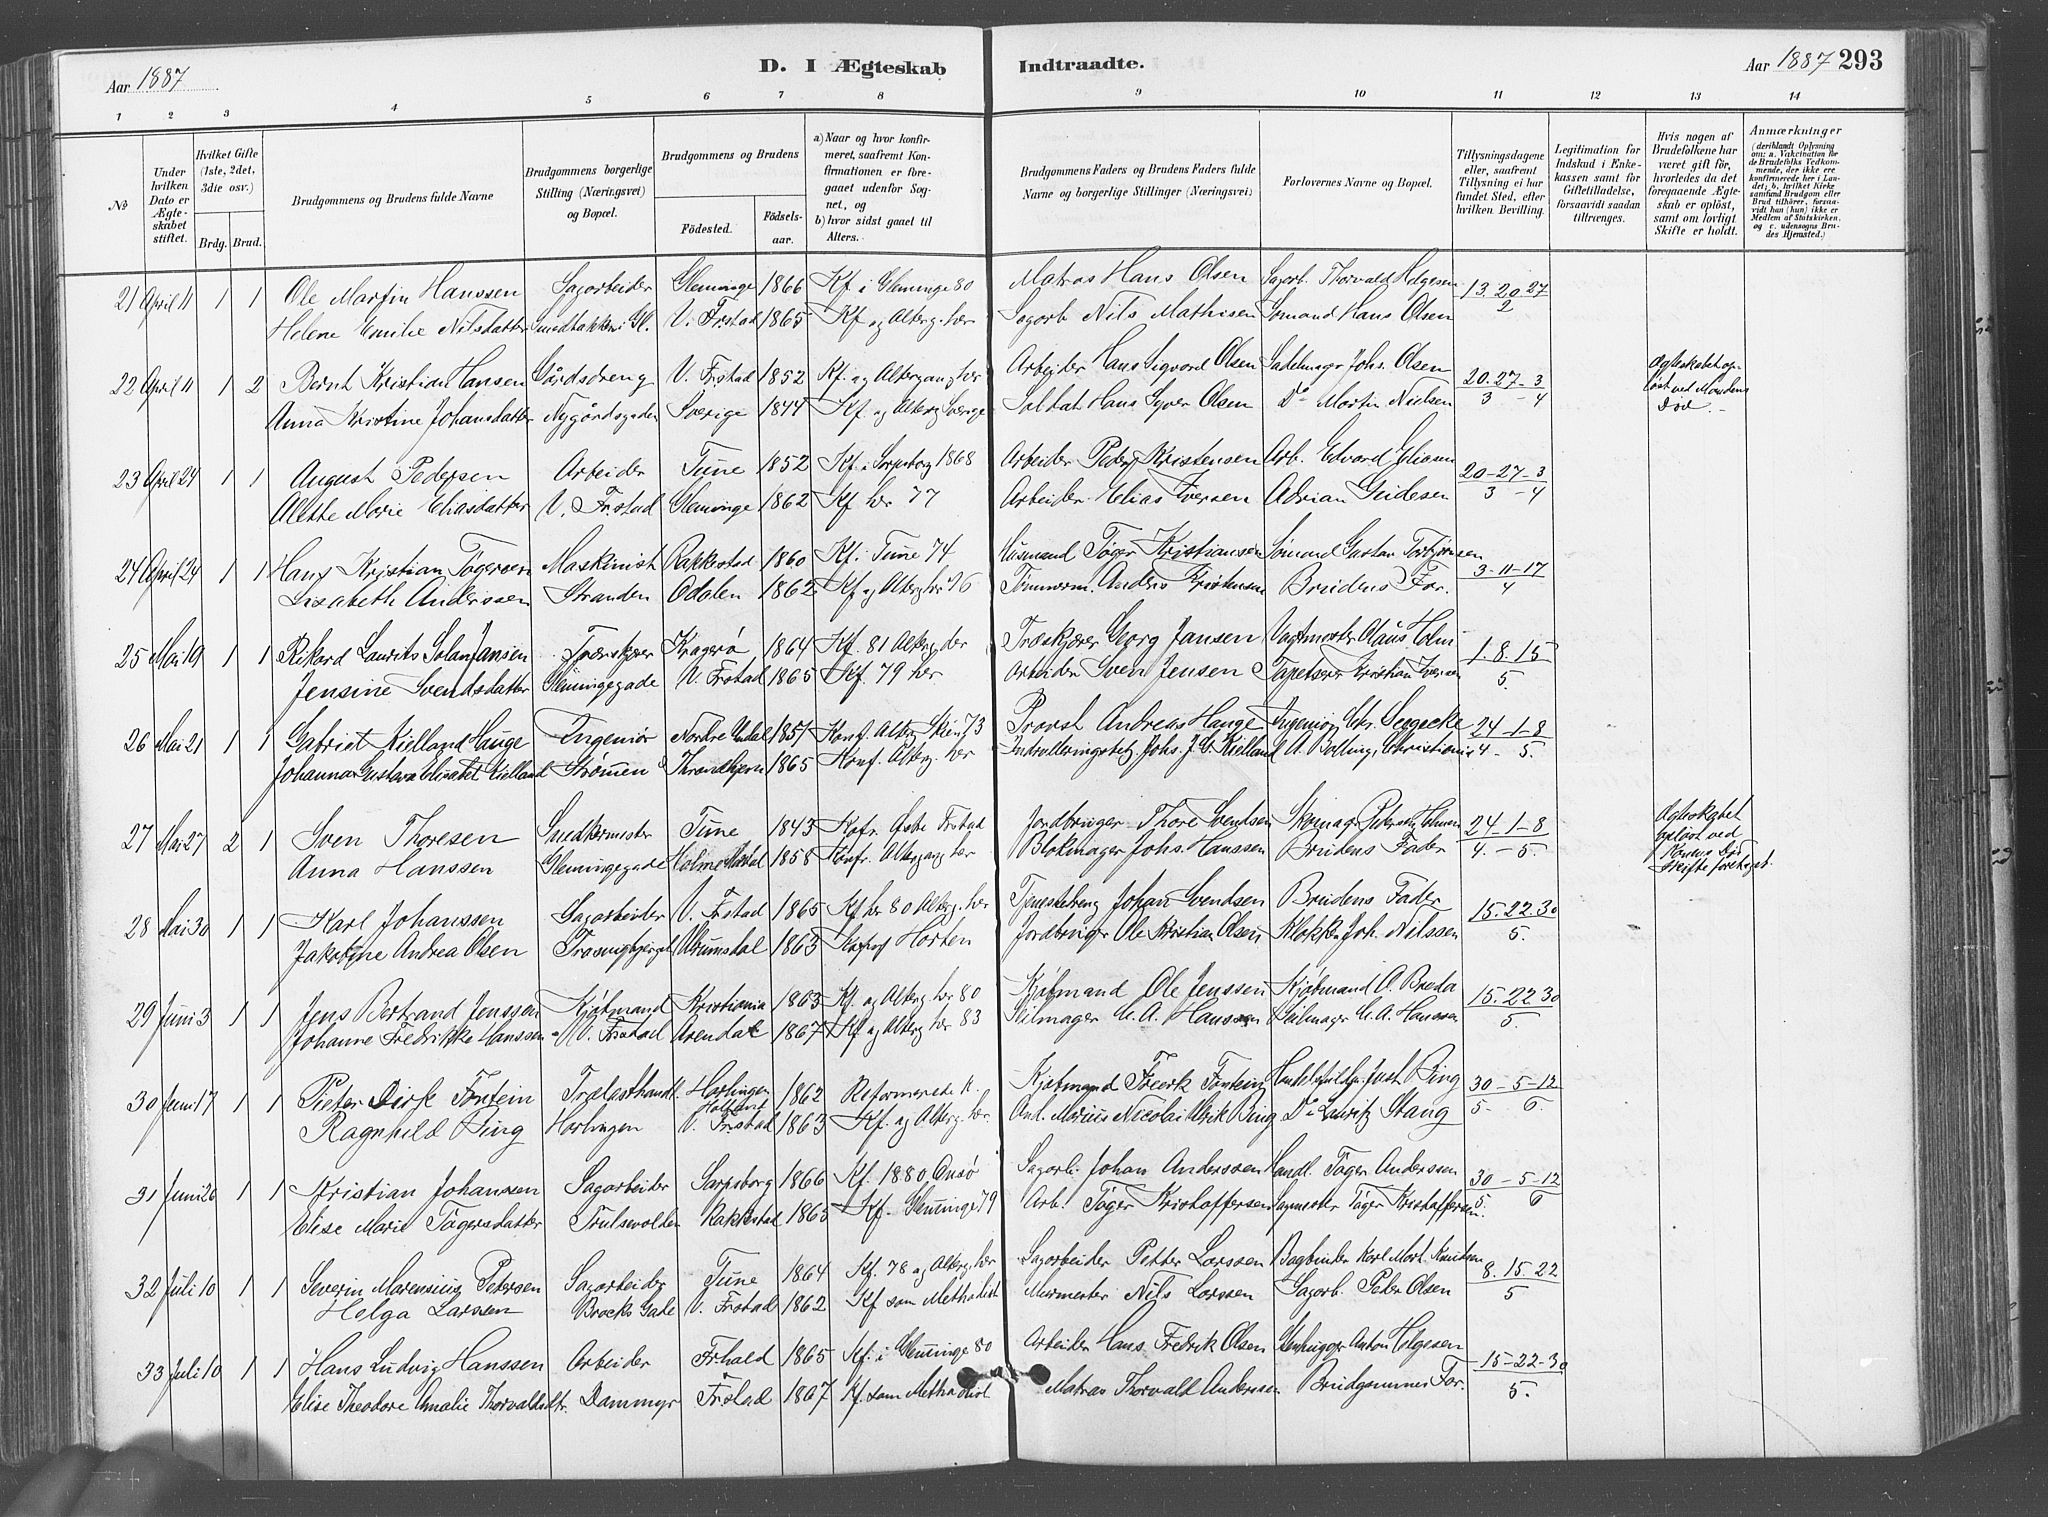 Aar 1887
D. I Ægteskab Indtraadte.
Aar 1887 293
1 2 3 4 5 6 7 8 9 10 11 12 13 14
No
Under hvilken Dato er Ægteskabet stiftet.
Hvilket Gifte (1ste, 2det, 3die osv.)
Brdg. Brud.
Brudgommens og Brudens fulde Navne
Brudgommens borgerlige Stilling (Næringsvei) og Bopæl.
Brudgommens og Brudens
Fødested. Fødselsaar.
a) Naar og hvor konfirmeret, saafremt Konfirmationen er foregaaet udenfor Sognet, og
b) hvor sidst gaaet til Alters.
Brudgommens Faders og Brudens Faders fulde Navne og borgerlige Stillinger (Næringsvei)
Forlovernes Navne og Bopæl.
Tillysningsdagene eller, saafremt Tillysning ei har fundet Sted, efter hvilken Bevilling.
Legitimation for Indskud i Enkekassen samt for Giftetilladelse, forsaavidt saadan tiltrænges.
Hvis nogen af Brudefolkene har været gift før, hvorledes da det foregaaende Ægteskab er opløst, samt om lovligt Skifte er holdt.
Anmærkninger (deriblandt Oplysning om: a. Vakcination for de Brudefolks Vedkommende, der ikke ere konfirmerede her i Landet; b. hvilket Kirkesamfund Brudgom eller Brud tilhører, forsaavidt han (hun) ikke er Medlem af Statskirken. og c. udensogns Brudes Hjemsted.)
21 April 11 1 1 Ole Martin Hanssen Sagarbeider Glemminge 1866 Kf. i Glemminge 80 Matros Hans Olsen Sagarb. Thorvald Helgesen 13. 20. 27
Helene Emilie Nilsdatter Smedbakken i Gl. V. Frstad 1865 Kf. og Alterg. her Sagarb. Nils Mathisen Sømand Hans Olsen 2
22 April 11 1 2 Bernt Kristian Hansen Gårdsdreng V. Frstad 1852 Kf. og Altergang her Arbeider Hans Sigvard Olsen Sadelmager Johs. Olsen 20. 27 - 3 Ægteskabet opløst ved Mandens Død.
Anna Kristine Johansdatter Nygårdsgaden Sverige 1844 Kf. og Alterg. Sverige Soldat Hans Syver Olsen Do Martin Nielsen 3 - 4
23 April 24 1 1 August Pedersen Arbeider Tune 1852 Kf. i Sarpsborg 1868 Arbeider Peder Kristensen Arb. Edvard 20 - 27 - 3
Alethe Marie Eliasdatter V. Frstad Glemminge 1862 Kf. her 77 Arbeider Elias Iversen Adrian 3 - 4
24 April 24 1 1 Hans Kristian Tøgersen Maskinist Rakkestad 1860 Kf. i Tune 74 Husmand Tøger Kristiansen Sømand Gustav Torbjørnsen 3 - 11 - 17
Lisabeth Anderssen Stranden Odalen 1862 Kf. og Alterg. her 76 Tømmerm. Anders Kristensen Brudens Far. 4
25 Mai 19 1 1 Rikard Laurits Solan Jansen Træskjærer Kragerø 1864 Kf. 81 Alterg. der Træskjærer Georg Jansen Vagtmester Claus Holm 1. 8. 15
Jensine Svendsdatter Glemmingegade V. Frstad 1865 Kf. 79 her Arbeider Sven Jensen Tapetserer Kristian Iversen 5.
26 Mai 21 1 1 Gabriel Kielland Hauge Ingeniør Nordre Undal 1857 Konf. Alterg. Skien 73 Provst Andreas Hauge Ingeniør Chr. Segelcke 24 - 1 - 8
Johanna Gustava Elisabet Kielland Strømmen Throndhjem 1865 Konf. Alterg. her Indrulleringsbetj. Johs. J. G. Kielland A. Bolling, Christiania 4. - 5.
27 Mai 27 2 1 Sven Thoresen Snedkermester Tune 1843 Kofr. Østre Frstad Jordbruger Thore Svendsen Skomager 24. 1 - 8 Ægteskabet opløst ved Konens Død Skifte foretaget.
Anna Hanssen Glemmingegade Holmestrand 1858 Konfr. Altergang her Blokmager Johs. Hanssen Brudens Fader 4. - 5.
28 Mai 30 1 1 Karl Johanssen Sagarbeider V. Frstad 1865 Kf. her 80 Alterg. her Tjenestedreng Johan Svendsen Brudens Fader 15. 22. 30
Jakobine Andrea Olsen Drumsdal 1863 Horten Jordbruger Ole Kristian Olsen Klokker Joh. Nilssen 5.
29 Juni 3 1 1 Jens Bertrand Jenssen Kjøbmand Kristiania 1863 Kf. og Alterg. her 80 Kjøbmand Ole Jenssen Kjøbmand O. Breda 15. 22 30
Johanne Fredrikke Hanssen V. Frstad Arendal 1867 Kf. og Alterg. her 83 Seilmager C. A. Hanssen Seilmager C. A. Hanssen 5.
30 Juni 17 1 1 Pieter Dirk Fontein Trælasthandl. Harlingen Holland 1862 Reformerede K. Kjøbmand Freerk Fontein Handelsfuldm. Just Bing 30 - 5 - 12
Ragnhild Bing Harlingen V. Frstad 1863 Kf. og Alterg. her. Ant. Marius Nicolai Ulrik Bing Do Lauritz Stang 5. 6.
31 Juni 26 1 1 Kristian Johanssen Sagarbeider Sarpsborg 1866 Kf. 1880, Onsø Sagarb. Johan Anderssen Handl. Tøger Anderssen 30 - 5 - 12
Elise Marie Tøgersdatter Trulsevolden Rakkestad 1865 Kf. Glemminge 79 Arb. Tøger Kristoffersen Sagmester Tøger Kristoffersen. 5. 6
32 Juli 10 1 1 Severin Marensius Petersen Sagarbeider Tune 1864 Kf. 78 og Alterg. her Sagarbeider Petter Larssen Bogbinder Karl Mart. Knudsen 8. 15. 22
Helga Larssen Brocks Gade V. Frstad 1862 Kf. som Methodist Murmester Nils Larssen Sagarb. Peder Olsen 5
33 Juli 10 1 1 Hans Ludvig Hanssen Arbeider Frhald 1865 Kf. i Glemminge 80 Arbeider Hans Fredrik Olsen Stenhugger Anton Helgesen 15 - 22 - 30
Elise Theodore Amalie Thorvaldsdtr. Dammyr Frstad 1867 Kf. som Methodist Matros Thorvald Anderssen Brudgommens Far. 5.